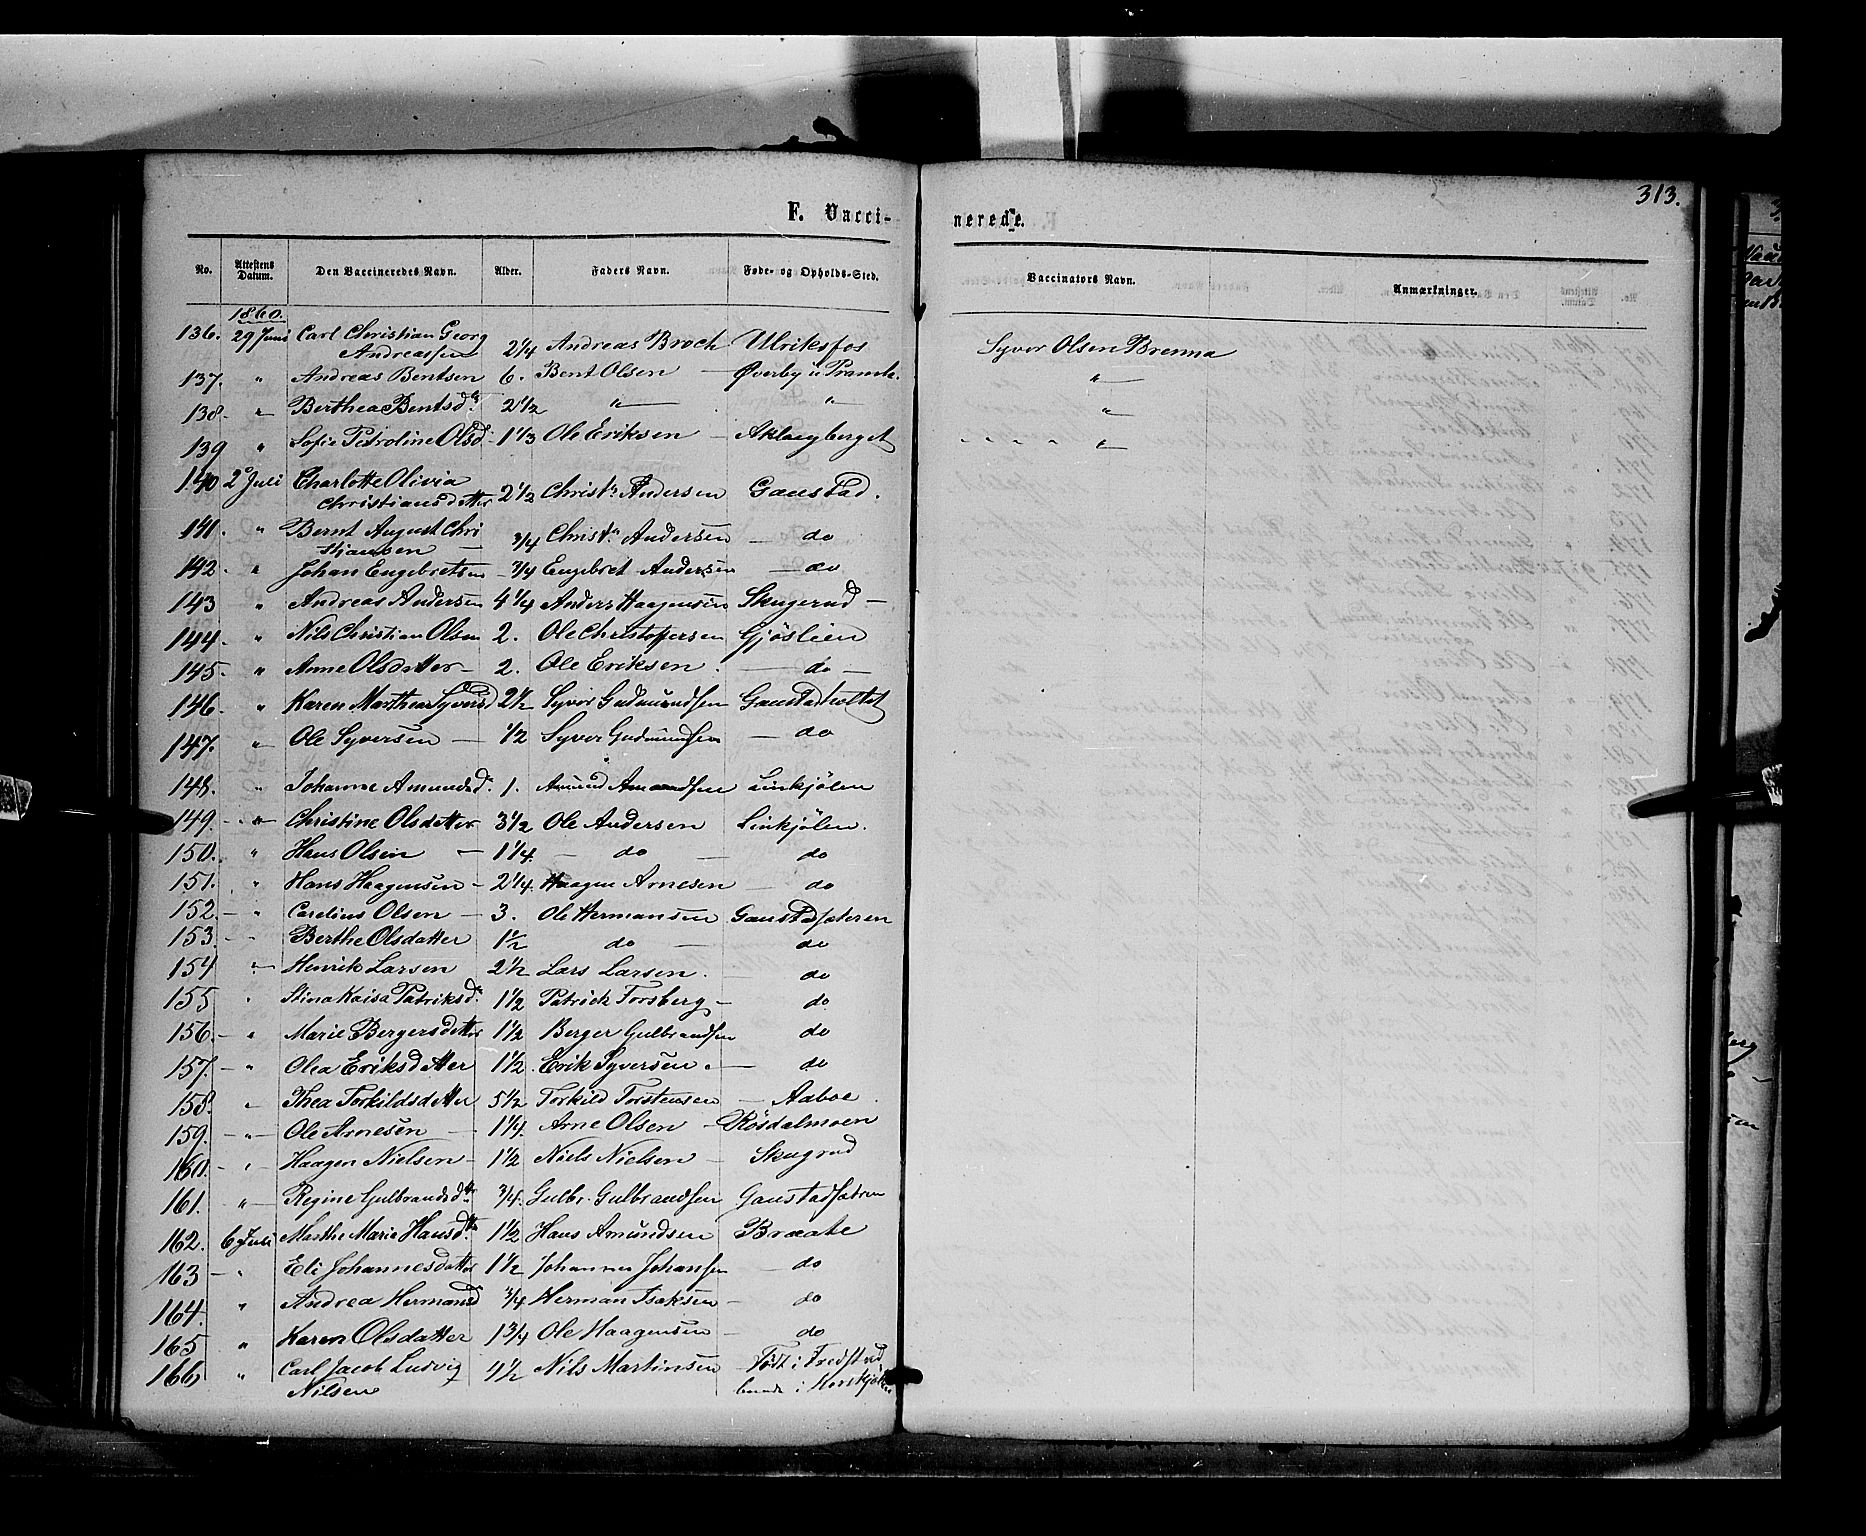 313.
F. Vacci-
nerede.
No. Attestens Datum. Den Vaccineredes Navn. Alder. Faders Navn. Føde- og Opholds-Sted. Vaccinators Navn. Anmærkninger.
1860.
136. 29 Juni Carl Christian Georg
Andreassen 2 1/4 Andreas Broch Ulriksfos Syver Olsen Brenna
137. " Andreas Bentsen 6. Bent Olsen — Øverby i "
138. " Berthea Bentsd. 2 1/2 " " "
139 " Sofie Petroline Olsd. 1 1/3 Ole Eriksen — Aklangberget "
140 2 Juli Charlotte Olivia
Christiansdatter 2 1/2 Christn Andersen Gaustad.
141. " Bernt August Chri
stiansen — 3/4 Christn Andersen — do
142. " Johan Engebretsen — 3/4 Engebret Andersen — do
143 " Andreas Andersen 4 1/4 Anders Haagensen Skugerud —
144. " Nils Christian Olsen 2. Ole Christophersen Gjøslien
145. " Anne Olsdatter — 2. Ole Eriksen — do —
146. " Karen Marthea Syversd 2 1/2 Syver Gudmundsen Gaustadholtet
147. " Ole Syversen — 1/2 Syver Gudmundsen — do
148. " Johanne Amundsd. 1. Amund Amundsen Linkjølen
149. " Christine Olsdatter 3 1/2 Ole Andersen Linkjølen.
150. " Hans Olsen — 1 1/4. — do — do
151. " Hans Haagensen — 2 1/4. Haagen Arnesen — do
152. — " Carelius Olsen — 3. Ole Hermansen Gaustadsæteren
153. — " Berthe Olsdatter 1 1/2 do — do
154 " Henrik Larsen 2 1/2 Lars Larsen. — do
155 " Stina Kaisa Patriksd. 1 1/2 Patrick Forsberg — do
156. — " Marie Bergersdatter 1 1/2 Berger Gulbrandsen do
157. — " Olea Eriksdatter 1 1/2 Erik Syversen. — do
158. " Thea Torkildsdatter 5 1/2 Torkild Torstensen — Aaboe.
159. — " Ole Arnesen — 1 1/4. Arne Olsen — Røsdalmoen
160. — " Haagen Nielsen — 1 1/2 Niels Nielsen — Skugrud
161. " Regine Gulbrandsd. 3/4. Gulbr. Gulbrandsen Gaustadsætren
162. 6 Juli Marthe Marie Hansd. 1 1/2 Hans Amundsen Braate
163 — " Eli Johannesdatter 1 1/2 Johannes Johansen — do
164. " Andrea Hermansd 3/4 Herman Isaksen — do
165 " Karen Olsdatter 1 3/4 Ole Haagensen — do
166 " Carl Jacob Ludvig 4 1/2 Nils Martinsen Født i Fredstad
Nilsen boende i